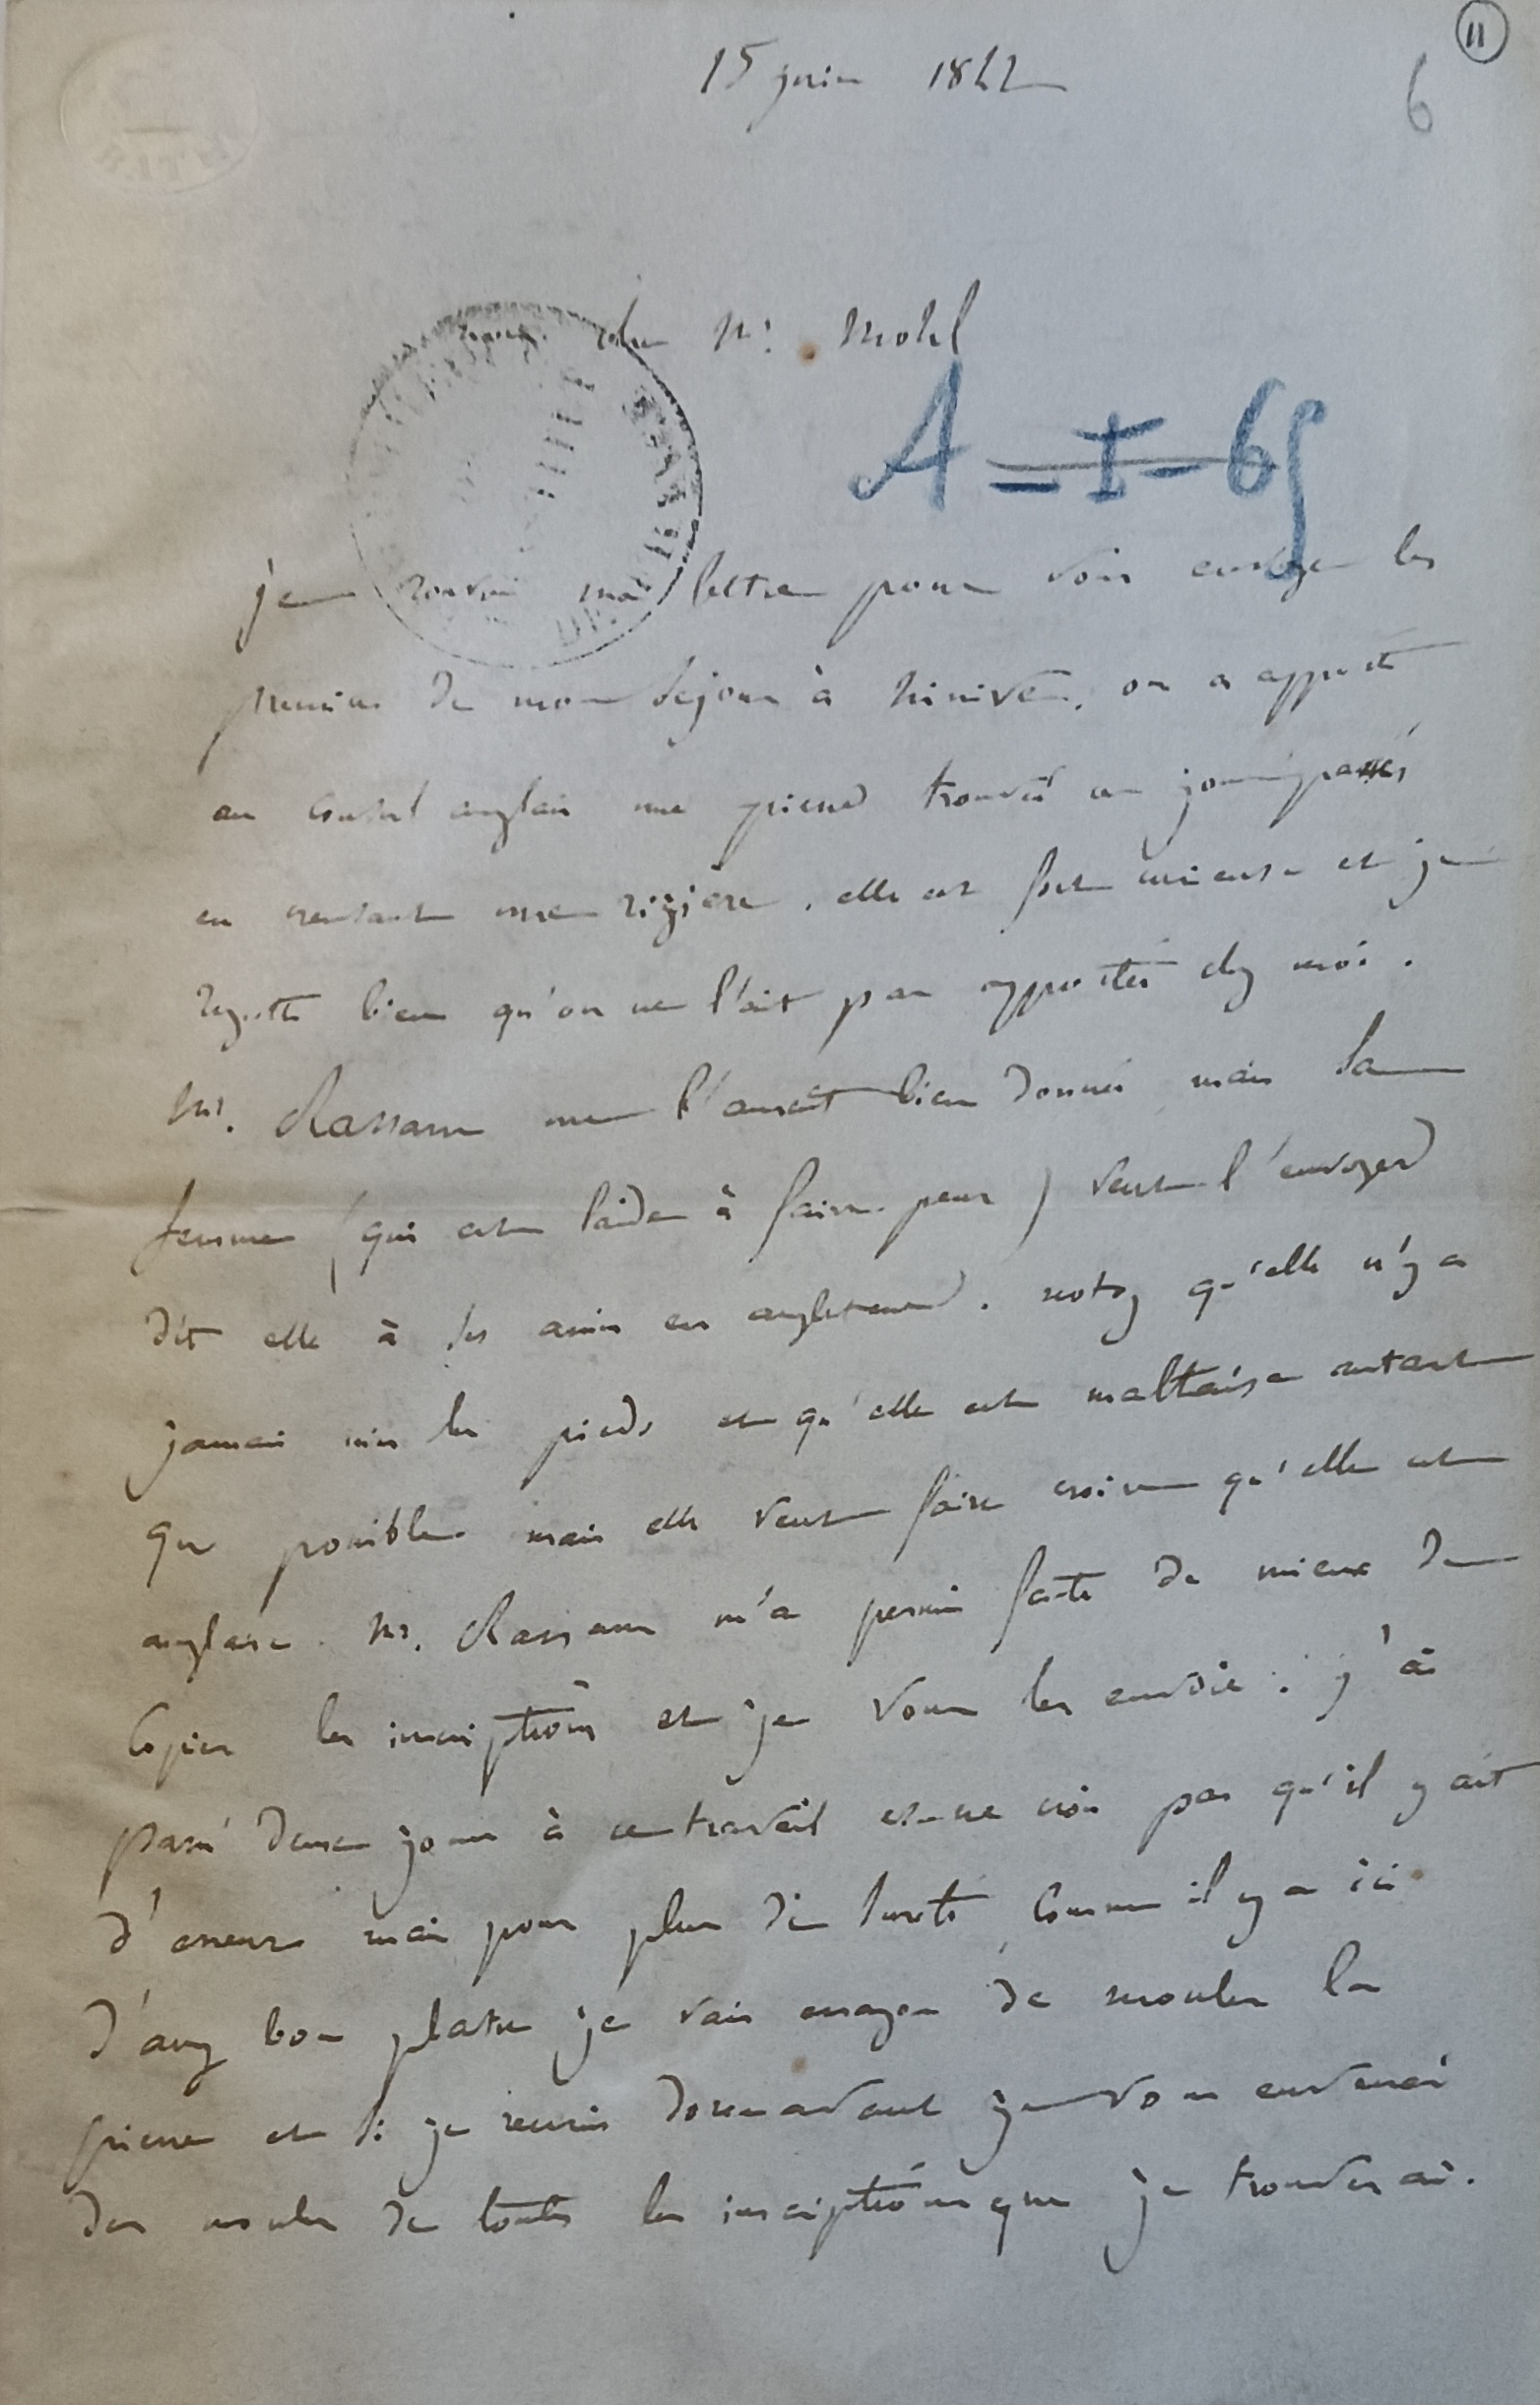 11
15 juin 1842
6
cher Mr. Mohl
A – I – 69
je rouvre ma lettre pour vous envoyer les
premices de mon sejour à Ninive. on a apporté
au consul anglais une pierre trouvée ces jours passés
en creusant une rizière. elle est fort curieuse et je
regrette bien qu'on ne l'ait pas apportée chez moi.
Mr. Rassam me l'aurait bien donnée mais sa
femme (qui est laide à faire peur) veut l'envoyer
dit elle à ses amis en angleterre. notez qu'elle n'y a
jamais mis les pieds et qu'elle est maltaise autant
que possible. mais elle veut faire croire qu'elle est
anglaise. Mr. Rassam m'a permis faute de mieux de
copier les inscriptions et je vous les envoie. j'ai
passé deux jours à ce travail et ne crois pas qu'il y ait
d'erreurs mais pour plus de sureté comme il y a ici
d'assez bon platre je vais essayer de mouler la
pierre et si je reussis dorenavant je vous enverrai
des moules de toutes les inscriptions que je trouverai.